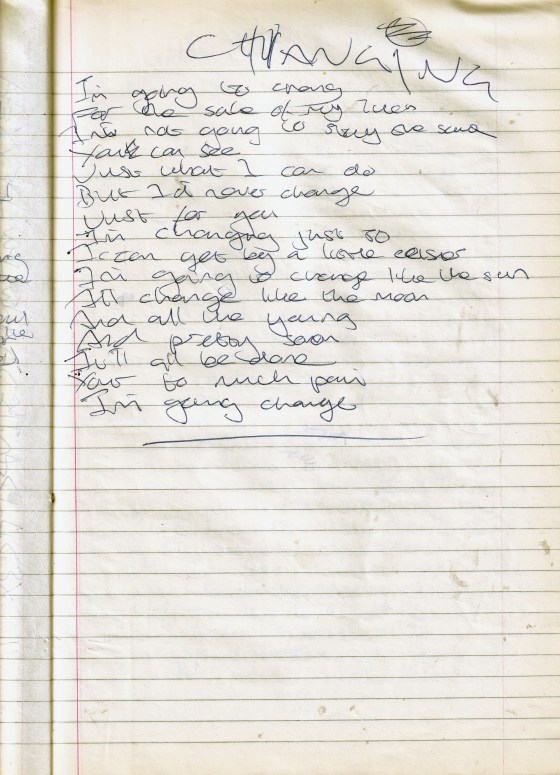 CHANGING
I'm going to chang
For the sake of my
I'm not going to stay the same
You can see
Just what I can do
But I'd never change
Just for you
I'm changing just so
I can get by a little easier
I'm going to change like the sun
I'll change like the moon
And all the young
And pretty soon
It'll all be done
to much pain
I'm going change